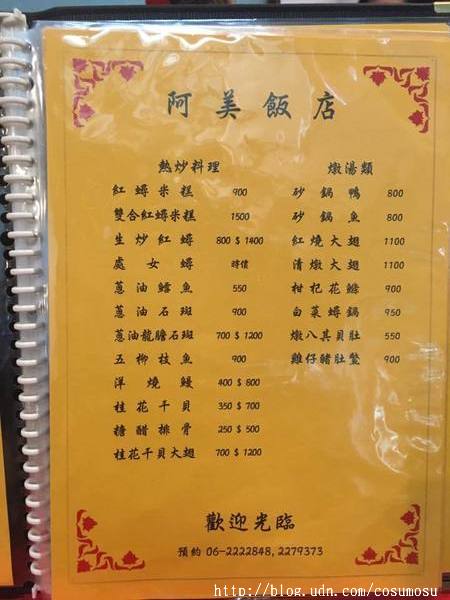 阿美飯店
熱炒料理
紅蟳米糕 900
雙合紅蟳米糕 1500
生炒紅蟳 800 $ 1400
處女蟳 時價
蔥油鱈魚 550
蔥油石斑 900
蔥油龍膽石斑 700 $ 1200
五柳枝魚 900
洋燒鰻 400 $ 800
桂花干貝 350 $ 700
糖醋排骨 250 $ 500
桂花干貝大翅 700 $ 1200
燉湯類
砂鍋鴨 800
砂鍋魚 800
紅燒大翅 1100
清燉大翅 1100
柑杞花鱘 900
白菜蟳鍋 950
燉八其貝肚 550
雞仔豬肚鱉 900
歡迎光臨
預約 06-2222848, 2279373
http://blog.udn.com/cosumosu